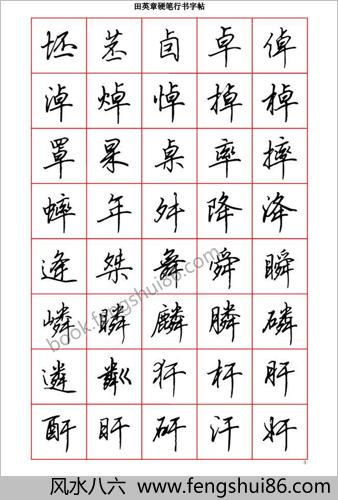 田英章硬笔行书字帖
坯 茎 卣 卓 倬
淖 焯 悼 掉 棹
罩 果 桌 率 摔
蟀 年 舛 降 泽
逢 桀 舞 舜 瞬
嶙 瞵 麟 膦 磷
遴 粼 犴 杆 肝
酐 盱 矸 汗 奸
book.fengshui86.com
风水八六 www.fengshui86.com